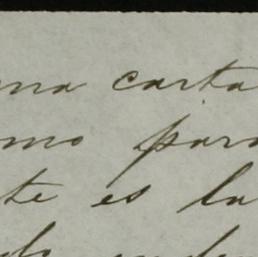 una carta
mo para
te es la